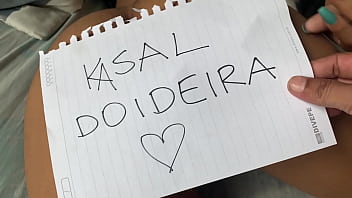 KASAL
DOIDEIRA
DIVEPE